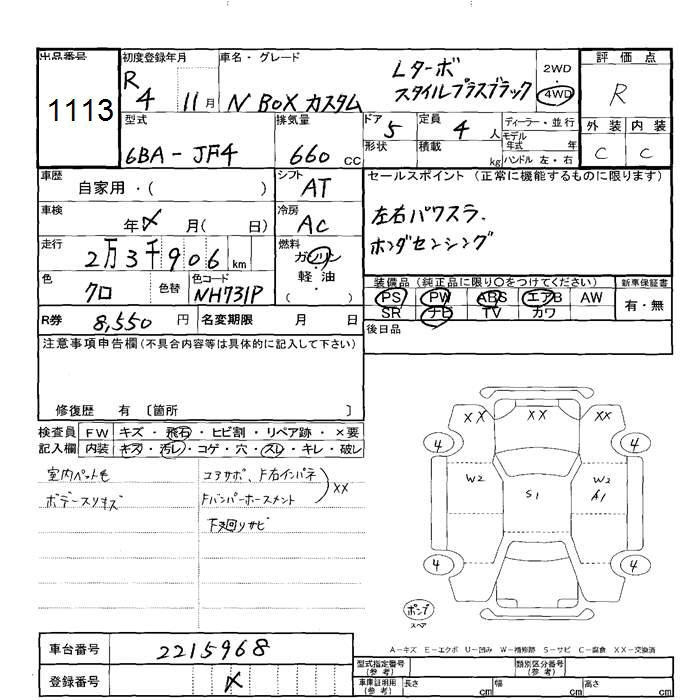 出品番号
1113
初度登録年月
R
4 11月
車名・グレード
N BOX カスタム
Lターボ
スタイルプラスブラック
2WD
・
4WD
評価点
R
外装 内装
C C
型式
6BA-JF4
排気量
660 cc
ドア 5
形状
定員 4 人
積載 kg
ディーラー・並行
モデル
年式 年
ハンドル 左・右
車歴
自家用・( )
シフト
AT
車検
年〆月( 日)
冷房
AC
走行
2万3千906 km
燃料
ガソリン
・
軽・油
( )
色
クロ
色替
色コード
NH731P
セールスポイント (正常に機能するものに限ります)
左右パワスラ、
ホンダセンシング
装備品 (純正品に限り○をつけてください)
PS PW ABS エアB AW
SR ナビ TV カワ
新車保証書
有・無
R券 8,550 円
名変期限 月 日
後日品
注意事項申告欄(不具合内容等は具体的に記入して下さい)
修復歴 有 〔箇所 〕
検査員 FW キズ・飛石・ヒビ割・リペア跡・×要
記入欄 内装 キズ・汚レ・コゲ・穴・スレ・キレ・破レ
室内ペット毛
ボデースリキズ
コアサポ、F右インパネ
Fバンパーホースメント
XX
下廻りサビ
XX XX XX
4 4
W2 S1 W2
A1
4 4
ポンプ
スペア
A-キズ E-エクボ U-凹み W-補修跡 S-サビ C-腐食 XX-交換済
車台番号 2215968
登録番号 〆
型式指定番号
(参考)
類別区分番号
(参考)
車庫証明用
(参考)
長さ cm 幅 cm 高さ cm